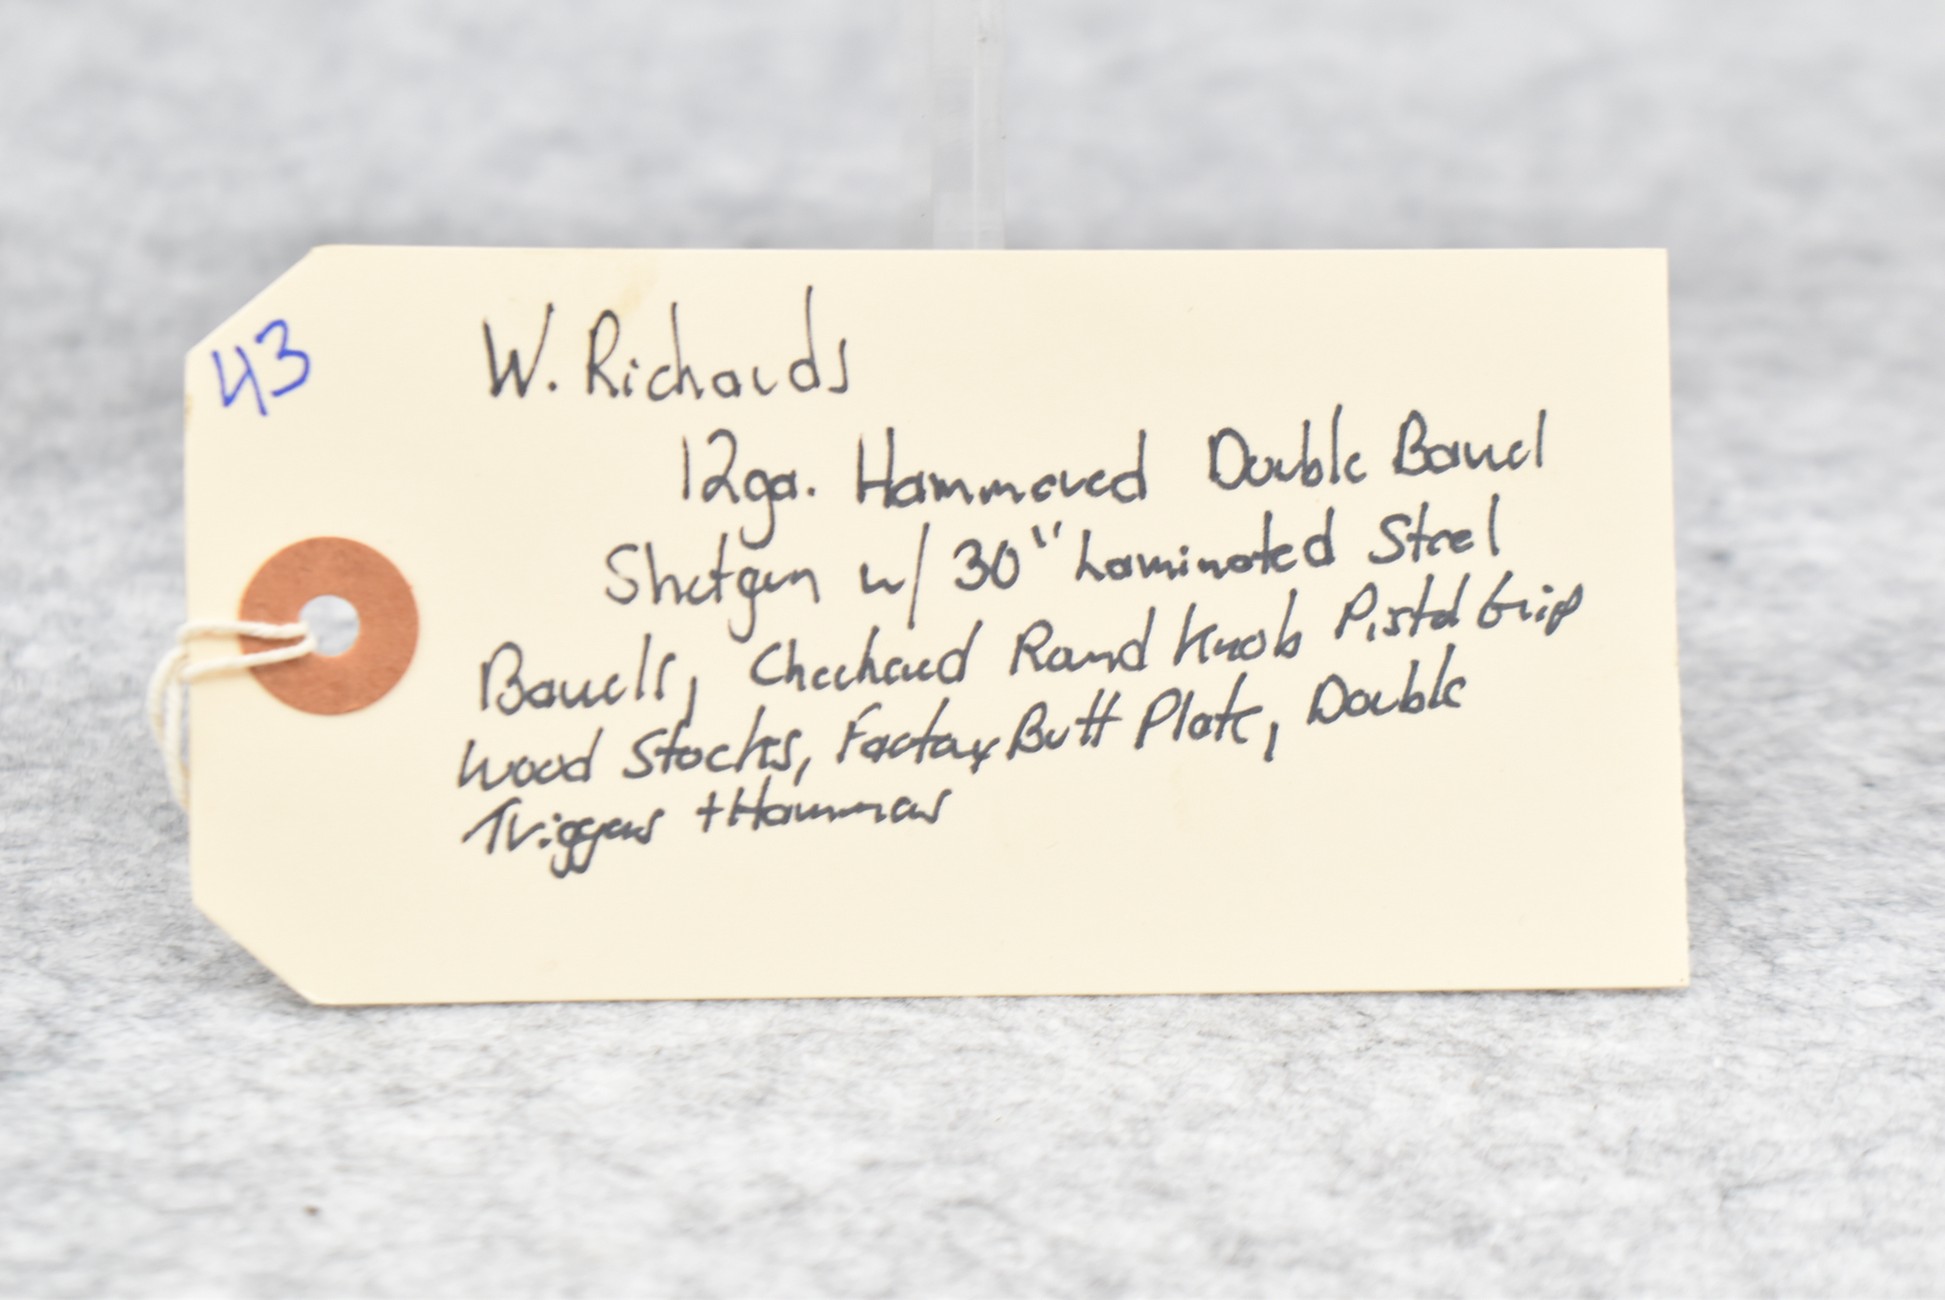 43
W. Richards
12ga. Hammered Double Barrel
Shotgun w/ 30" Laminated Steel
Barrels, Checkered Round Knob Pistol Grip
Wood Stocks, Factory Butt Plate, Double
Triggers + Hammers